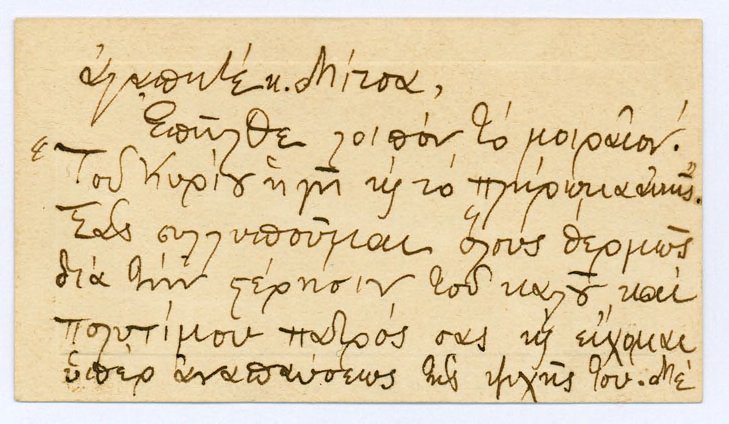 ἀγαπητέ κ. Μίτσα,
Ἐπῆλθε λοιπόν τό μοιραῖον.
"Τοῦ Κυρίου ἡ γῆ κ τό πλήρωμα αὐτῆς".
Σᾶς συλλυποῦμαι ὅλους θερμῶς
διά τήν στέρησιν τοῦ καλοῦ καί
πολυτίμου πατρός σας κ εὔχομαι
ὑπέρ ἀναπαύσεως τῆς ψυχῆς του. Μέ